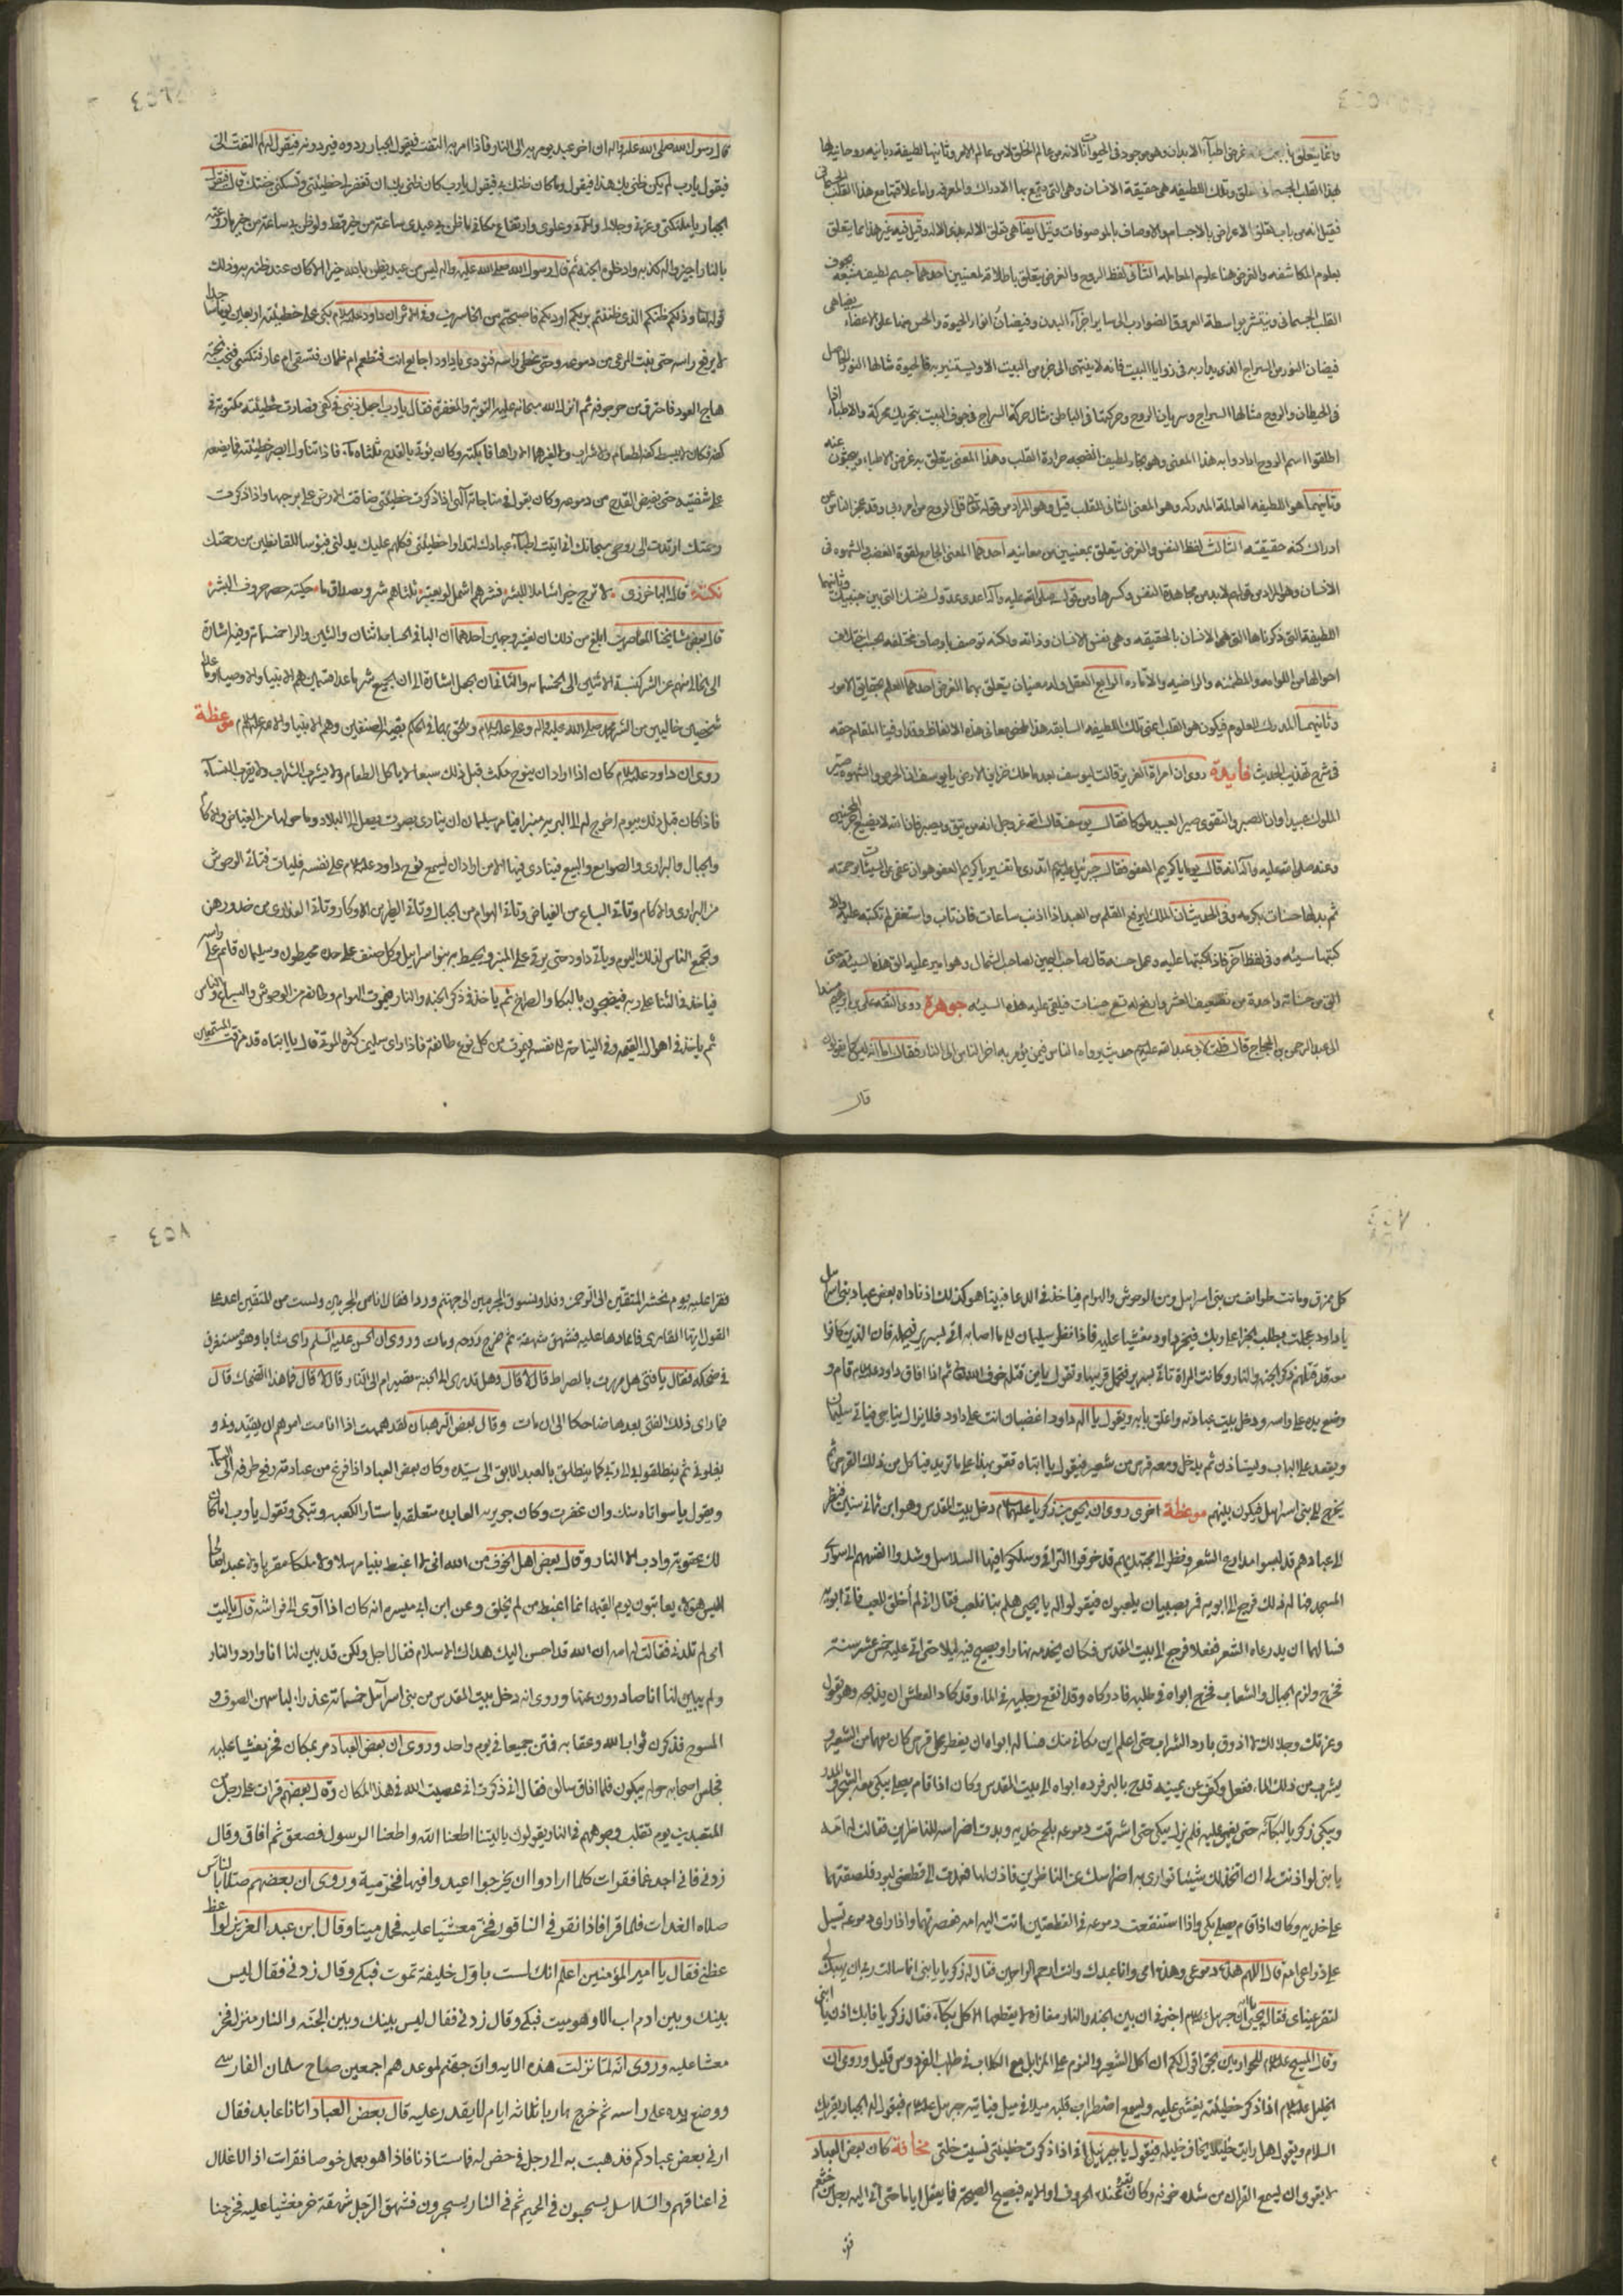 وانما يتعلق به غرض اطباء الابدان وهو موجود في الحيوانات لانه من عالم الخلق لا من عالم الامر وثانيهما لطيفة ربانيه روحانيه لها
بهذا القلب الجسماني تعلق وتلك اللطيفه هي حقيقة الانسان وهي التي بها الادراك والمعرفه واما علاقتها مع هذا القلب الجسماني
فقيل انه من باب تعلق الاعراض بالاجسام والاوصاف بالموصوفات وقيل ايضا هي تعلق الاله بذي الاله وقيل فيه غير هذا مما يتعلق
بعلوم المكاشفه والغرض هنا علوم المعامله الثاني لفظ الروح والغرض يتعلق باطلاقه لمعنيين احدهما جسم لطيف منبعه تجويف
القلب الجسماني وينتشر بواسطة العروق الضوارب الى ساير اجزاء البدن وفيضان انوار الحيوة والحس منها على الاعضاء يضاهي
فيضان النور من السراج الذي يدار به في زوايا البيت فانه لا ينتهي الى جزء من البيت الا ويستنير به فالحيوة مثالها النور الحاصل
في الحيطان والروح مثالها السراج وسريان الروح وحركتها في الباطن مثال حركة السراج في جوف البيت بتحريك محركه والاطباء اذا
اطلقوا اسم الروح ارادوا به هذا المعنى وهو بخار لطيف انضجته حرارة القلب وهذا المعنى يتعلق به غرض الاطباء ويبحثون عنه
وثانيهما هو اللطيفه العالمة المدركه وهو المعنى الثاني للقلب قيل وهو المراد من قوله تعالى قل الروح من امر ربي وقد عجز الناس عن
ادراك كنه حقيقته الثالث لفظ النفس والغرض يتعلق بمعنيين من معانيه احدهما المعنى الجامع لقوة الغضب والشهوه في
الانسان وهو المراد من قولهم لا بد من مجاهدة النفس وكسرها ومن قوله صلى الله عليه وآله اعدى عدوك نفسك التي بين جنبيك وثانيهما
اللطيفة التي ذكرناها التي هي الانسان بالحقيقه وهي نفس الانسان وذاته ولكنه توصف باوصاف مختلفه بحسب اختلاف
احوالها من اللوامه والمطمئنه والراضيه والامّاره الرابع العقل وله معنيان يتعلق بهما الغرض احدهما العلم بحقايق الامور
وثانيهما المدرك للعلوم فيكون هو القلب اعني تلك اللطيفه السابقه هذا ملخص معاني هذه الالفاظ وقد اوفينا المقام حقه
في شرح تهذيب الحديث فايدة روى ان امراة العزيز قالت ليوسف بعد ما ملك خزاين الارض يا يوسف ان الحرص والشهوه صير
الملوك عبيدا وان الصبر والتقوى صير العبيد ملوكا فقال يوسف قال الله عز وجل انه من يتق ويصبر فان الله لا يضيع اجر المحسنين
وعنه صلى الله عليه وآله انه قال يوما يا كريم العفو فقال جبرئيل عليه السلم اتدري ما تفسير يا كريم العفو هو ان عفى عن السيئات برحمته
ثم بدلها حسنات بكرمه وفي الحديث ان الملك ليرفع القلم عن العبد اذا اذنب ساعات فان تاب واستغفر لم تكتبه عليه والا
كتبها سيئه وفي لفظ آخر فاذا كتبها عليه وعمل حسنه قال صاحب اليمين لصاحب الشمال وهو امير عليه الق هذه السيئه حتى
القي من حسناته واحدة من تضعيف العشر وارفع له تسع حسنات فيلقى عليه هذه السيئه جوهرة روى الثقه علي بن ابرهيم مسندا
الى عبد الرحمن بن الحجاج قال قلت لابي عبد الله عليه السلم حديث يرواها الناس فيمن يؤمر به اخر الناس الى النار فقال اما انه ليس كما يقولون
قال
٤٥٦
قال رسول الله صلى الله عليه واله ان اخر عبد يؤمر به الى النار فاذا امر به التفت فيقول الجبار ردوه فيردونه فيقول له لم التفتّ الي
فيقول يا رب لم يكن ظني بك هذا فيقول وما كان ظنك بي فيقول يا رب كان ظني بك ان تغفر لي خطيئتي وتسكنني جنتك قال فيقول
الجبار يا ملئكتي وعزتي وجلالي وآلائي وعلوي وارتفاع مكاني ما ظن بي عبدي ساعة من خير قط ولو ظن بي ساعة من خير ما روعته
بالنار اجيزوا له كذبه وادخلوه الجنة ثم قال رسول الله صلى الله عليه واله ليس من عبد يظن بالله خيرا الا كان عند ظنه به وذلك
قوله تعالى وذلكم ظنكم الذي ظننتم بربكم ارديكم فاصبحتم من الخاسرين وفي الاثر ان داود عليه السلام بكى على خطيئته اربعين يوما ساجدا
لا يرفع راسه حتى نبت المرعى من دموعه وحتى غطى راسه فنودى يا داود اجايع انت فتطعم ام ظمآن فتسقى ام عار فتكسى فنحب نحبة
هاج العود فاحترق من حر جوفه ثم انزل الله سبحانه عليه التوبة والمغفرة فقال يا رب اجعل ذنبي في كفي فصارت خطيئته مكتوبة في
كفه فكان لا يبسط كفه لطعام ولا شراب ولا لغيرهما الا راها فابكته وكان يؤتى بالقدح ثلثاه ماء فاذا تناوله ابصر خطيئته فما يضعه
على شفتيه حتى يفيض القدح من دموعه وكان يقول في مناجاته آلهي اذا ذكرت خطيئتي ضاقت الارض علي برحبها واذا ذكرت
رحمتك ارتدت الي روحي سبحانك الهي اتيت اطباء عبادك ليداووا خطيئتي فكلهم عليك يدلني فبؤسا للقانطين من رحمتك
نكتة قال الباخرزي لا ترج خيرا شاملا للبشر فشرهم اشمل لو يعتبر ثلثاهم شر ومصداق ما حكيته حصر حروف البشر
قال بعض مشايخنا المعاصرين ابلغ من ذلك ان يغير وجهين احدهما ان الباء في الحساب اثنان والشين والراء خمسمائة وفيه اشارة
الى الخالي منهم عن الشر كنسبة الاثنين الى الخمسمائه والثاني ان يجعل اشارة الى ان الجميع شر ما عدا صنفين هم الانبياء والاوصياء او ما علا
شخصين خاليين من الشر محمد صلى الله عليه واله وعلي عليه السلام ويلحق بهما في الحكم بقية الصنفين وهم الانبياء والائمة عليهم السلام موعظة
روى ان داود عليه السلام كان اذا اراد ان ينوح مكث قبل ذلك سبعا لا ياكل الطعام ولا يشرب الشراب ولا يقرب النساء
فاذا كان قبل ذلك بيوم اخرج له الى البرية منبر فيامر سليمان ان ينادي بصوت يصل الى البلاد وما حولها من الغياض والاكام
والجبال والبراري والصوامع والبيع فينادي فيها الا من اراد ان يسمع نوح داود عليه السلام على نفسه فليات فتاتي الوحوش
من البراري والاكام وتاتي السباع من الغياض وتاتي الهوام من الجبال وتاتي الطير من الاوكار وتاتي العذارى من خدورهن
وتجتمع الناس لذلك اليوم وياتي داود حتى يرقى على المنبر ويحيط به بنو اسراييل وكل صنف على حدة محيطون وسليمان قائم على راسه
فياخذ في الثناء على ربه فيضجون بالبكاء والصراخ ثم ياخذ في ذكر الجنة والنار فيموت الهوام وطائفة من الوحوش والسباع والناس
ثم ياخذ في اهوال القيمة وفي النياحة على نفسه فيموت من كل نوع طائفة فاذا راى سليمان كثرة الموتى قال يا ابتاه قد مزقت المستمعين
٤٥٧
كل ممزق وماتت طوايف من بني اسرايل ومن الوحوش والهوام فياخذ في الدعاء فبينا هو كذلك اذ ناداه بعض عباد بني اسرايل
يا داود عجلت بطلب الجزاء على ربك فيخر داود مغشيا عليه فاذا نظر سليمان الى ما اصابه اتى بسرير فيحمله فان الذين كانوا
معه قد قتلهم ذكر الجنه والنار وكانت المراة تاتي بسرير فتحمل قريبها وتقول يا من قتله خوف الله ثم اذا افاق داود عليه السلام قام و
وضع يده على راسه ودخل بيت عبادته واغلق بابه ويقول يا اله داود اغضبان انت على داود فلا يزال يناجي فياتي سليمان
ويقعد على الباب ويستاذن ثم يدخل ومعه قرص من شعير فيقول يا ابتاه تقو بهذا على ما تريد فياكل من ذلك القرص ثم
يخرج الى بني اسرايل فيكون بينهم موعظة اخرى روى ان يحيى بن زكريا عليهما السلام دخل بيت المقدس وهو ابن ثماني سنين فنظر
الى عبادهم قد لبسوا مدارع الشعر ونظر الى مجتهديهم قد خرقوا التراقي وسلكوا فيها السلاسل وشدوا انفسهم الى سواري
المسجد فهاله ذلك فرجع الى ابويه فمر بصبيان يلعبون فيقولوا له يا يحيى هلم بنا نلعب فقال اني لم اخلق للعب فاتى ابويه
فسالهما ان يدرعاه الشعر ففعلا فرجع الى بيت المقدس فكان يخدمه نهارا ويصيح فيه ليلا حتى اتى عليه خمس عشر سنة
فخرج ولزم الجبال والشعاب فخرج ابواه في طلبه فادركاه وقد انقع رجليه في الماء وقد كاد العطش ان يذبحه وهو يقول
وعزتك وجلالك لا اذوق بارد الشراب حتى اعلم اين مكاني منك فساله ابواه ان يفطر على قرص كان معهما من الشعير و
يشرب من ذلك الماء ففعل وكفّر عن يمينه فمدح بالبر فرده ابواه الى بيت المقدس وكان اذا قام يصلي يبكي معه الشجر والمدر
ويبكي زكريا لبكآئه حتى يغمى عليه فلم يزل يبكي حتى اشرقت دموعه بلحم خديه وبدت اضراسه للناظرين فقالت له امه
يا بني لو اذنت لي ان اتخذ لك شيئا تواري به اضراسك عن الناظرين فاذن لها فعمدت الى قطعتي لبود فلصقتهما
على خديه وكان اذا قام يصلي بكى واذا استنقعت دموعه في القطعتين اتت اليه امه فعصرتهما واذا راى دموعه تسيل
على ذراعي امه قال اللهم هذه دموعي وهذه امي وانا عبدك وانت ارحم الراحمين فقال له زكريا يا بني انما سالت ربي ان يهبك لي
لتقر عيناي فقال يحيى يا ابه ان جبريل عليه السلام اخبرني ان بين الجنه والنار مفازه لا يقطعها الا كل بكآء فقال زكريا فابك اذن يا ابني
وقال المسيح عليه السلام للحواريين بحق اقول لكم ان اكل الشعير والنوم على المزابل مع الكلاب في طلب الفردوس قليل وروى ان
الخليل عليه السلام اذا ذكر خطيئته يغشى عليه ويسمع اضطراب قلبه ميلا في ميل فياتيه جبريل عليه السلام فيقول له الجبار يقرئك
السلام ويقول هل رايت خليلا يخاف خليله فيقول يا جبرئيل اني اذا ذكرت خطيئتي نسيت خلتي مخافة كان بعض العباد
لا يقوى ان يسمع القران من شدة خوفه وكان يقرء عنده الحرف او الايه فيصيح الصيحة فما يعقل اياما حتى اتى اليه رجل من خثعم
فقر
٤٥٨
فقرا عليه يوم نحشر المتقين الى الرحمن وفدا ونسوق المجرمين الى جهنم وردا فقال انا من المجرمين ولست من المتقين اعد علي
القول ايها القاري فاعادها عليه فشهق شهقة ثم خرج روحه ومات وروى ان الحسن عليه السلم راى شابا وهو مستغرق
في ضحكه فقال يا فتى هل مررت بالصراط قال لا قال وهل تدري الى الجنة مصيرك ام الى النار قال لا قال فما هذا الضحك قال
فما راى ذلك الفتى بعدها ضاحكا الى ان مات وقال بعض الرهبان لقد هممت اذا انا مت امرهم ان يقيدوني و
يغلوني ثم ينطلقوا بي الى ربي كما ينطلق بالعبد الابق الى سيده وكان بعض العباد اذا فرغ من عبادته رفع طرفه الى السماء
ويقول يا سواتاه منك وان غفرت وكان جويريه العابده متعلقه باستار الكعبه وتبكي وتقول يا رب اما كان
لك عقوبة وادب الا النار وقال بعض اهل الخوف من الله اني لا اغبط نبيا مرسلا ولا ملكا مقربا ولا عبدا صالحا
اليس هؤلاء يعاتبون يوم القيمه انما اغبط من لم يخلق وعن ابن ابي ميسره انه كان اذا آوى الى فراشه قال يا ليت
امي لم تلدني فقالت له امه ان الله قد احسن اليك هداك الاسلام فقال اجل ولكن قد بين لنا انا واردو النار
ولم يبين لنا انا صادرون عنها وروى انه دخل بيت المقدس من بني اسرآئيل خمسمائة عذراء لباسهن الصوف و
المسوح فذكرن ثواب الله وعقابه فمتن جميعا في يوم واحد وروى ان بعض العباد مر بمكان فخر مغشيا عليه
فجلس اصحابه حوله يبكون فلما افاق سالوه فقال اني ذكرت اني عصيت الله في هذا المكان وقال بعضهم قرات على رجل من
المتعبدين يوم تقلب وجوههم في النار يقولون يا ليتنا اطعنا الله واطعنا الرسول فصعق ثم افاق وقال
زدني فاني اجد غما فقرات كلما ارادوا ان يخرجوا اعيدوا فيها فخر ميتة وروى ان بعضهم صلا بالناس
صلاه الغدات فلما قرا فاذا نقر في الناقور فخر مغشيا عليه فحمل ميتا وقال ابن عبد العزيز لواعظ
عظني فقال يا امير المؤمنين اعلم انك لست باول خليفة تموت فبكى وقال زدني فقال ليس
بينك وبين ادم اب الا وهو ميت فبكى وقال زدني فقال ليس بينك وبين الجنه والنار منزل فخر
مغشيا عليه وروى انه لما نزلت هذه الايه وان جهنم لموعدهم اجمعين صاح سلمان الفارسي
ووضع يده على راسه ثم خرج هاربا ثلاثه ايام لا يقدر عليه قال بعض العباد اتانا عابد فقال
ارني بعض عبادكم فذهبت به الى رجل في حض له فاستاذنا فاذا هو يعمل خوصا فقرات اذ الاغلال
في اعناقهم والسلاسل يسحبون في الحميم ثم في النار يسجرون فشهق الرجل شهقة خر مغشيا عليه فخرجنا